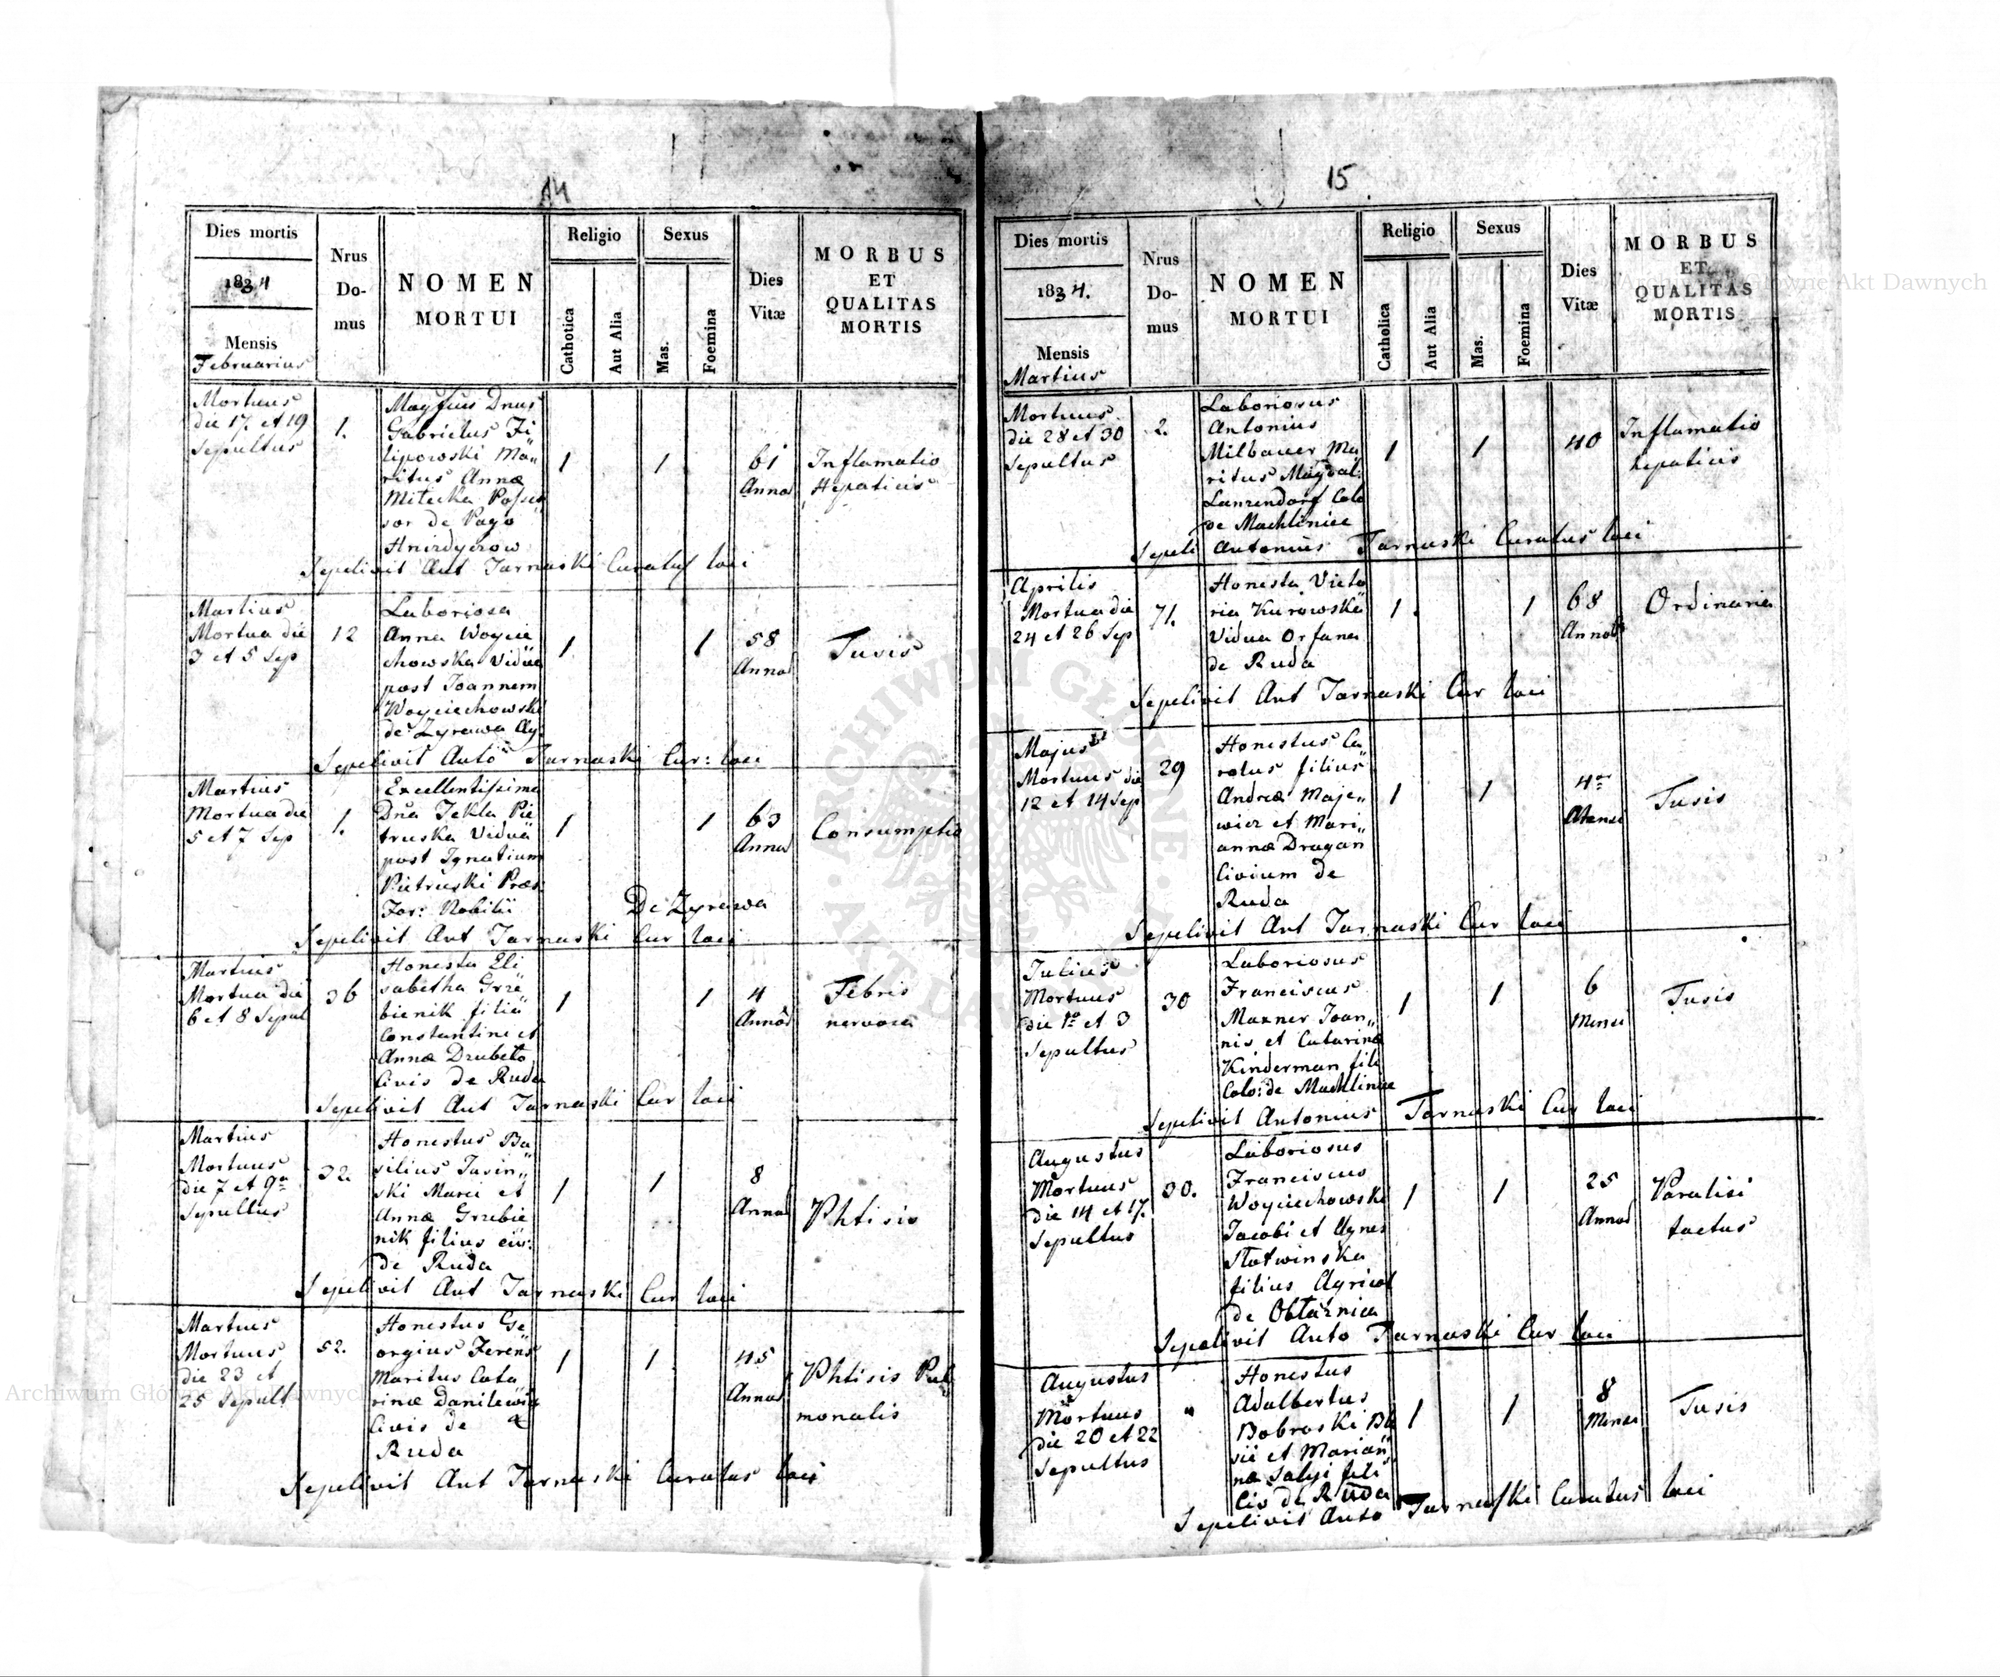 14
Dies mortis
1834
Mensis
Februarius
Nrus
Do-
mus
NOMEN
MORTUI
Religio
Catholica
Aut Alia
Sexus
Mas.
Foemina
Dies
Vitæ
MORBUS
ET
QUALITAS
MORTIS
Mortuus
die 17. et 19
Sepultus
1.
Dnus
Gabrielus Fi
lipowski Ma„
ritus Annæ
Mitecka Posses
sor de Pago
Hnizdyczow
1
1
61
Annor
Inflamatio
Hepaticis
Sepelivit Ant Tarnaski Curatus loci
Martius
Mortua die
3 et 5 Sep
12
Laboriosa
Anna Woycie
chowska Vidua
post Joannem
Woyciechowski
de Zyrawa Ag.
1
1
58
Annor
Tusis
Sepelivit Anto Tarnaski Cur: loci
Martius
Mortua die
5 et 7 Sep
1.
Excellentissima
Dna Tekla Pie
truska Vidua
post Ignatium
Pietruski Præs
For: Nobilii
1
1
63
Annor
Consumptio
De Zyrawa
Sepelivit Ant Tarnaski Cur loci
Martius
Mortua die
6 et 8 Sepul
36
Honesta Eli
sabetha Grze
bienik filia
Constantini et
Annæ Drubeto
Civis de Ruda
1
1
4
Annor
Febris
nervosa
Sepelivit Ant Tarnaski Cur loci
Martius
Mortuus
die 7 et 9a
Sepultus
32.
Honestus Ba„
silius Jasin„
ski Marci et
Annæ Grzebie
nik filius civ:
de Ruda
1
1
8
Annor
Phtisis
Sepelivit Ant Tarnaski Cur loci
Martius
Mortuus
die 23 et
25 Sepult
52.
Honestus Ge
orgius Ferens
Maritus Cata
rinæ Danilewicz
Civis de
Ruda
1
1
45
Annor
Phtisis Pul
monalis
Sepelivit Ant Tarnaski Curatus loci
15
Dies mortis
1834.
Mensis
Martius
Nrus
Do-
mus
NOMEN
MORTUI
Religio
Catholica
Aut Alia
Sexus
Mas.
Foemina
Dies
Vitæ
MORBUS
ET
QUALITAS
MORTIS
Mortuus
die 28 et 30
Sepultus
2.
Laboriosus
Antonius
Milbauer Ma
ritus Magdal:
Lanzendorf Colo
de Machliniec
1
1
40
Inflamatio
hepaticis
Sepeli Antonius Tarnaski Curatus loci
Aprilis
Mortua die
24 et 26 Sep
71.
Honesta Victo
ria Kurowska
Vidua Orfana
de Ruda
1.
1
68
Annor
Ordinaria
Sepelivit Ant Tarnaski Cur loci
Majus
Mortuus die
12 et 14 Sep
29
Honestus Ca„
rolus filius
Andreæ Maje„
wicz et Mari„
annæ Dragan
Civium de
Ruda
1
1
4or
Tusis
Sepelivit Ant Tarnaski Cur loci
Julius
Mortuus
die 1a et 3
Sepultus
30
Laboriosus
Franciscus
Maxner Joan„
nis et Catarinæ
Kinderman fili
Colo: de Machliniec
1
1
6
Mensi
Tusis
Sepelivit Antonius Tarnaski Cur loci
Augustus
Mortuus
die 14 et 17.
Sepultus
30.
Laboriosus
Franciscus
Woyciechowski
Jacobi et Agnes
Slotwinska
filius Agricol
de Obłaźnica
1
1
25
Annor
Paralisi
tactus
Sepelivit Anto Tarnaski Cur loci
Augustus
Mortuus
die 20 et 22
Sepultus
"
Honestus
Adalbertus
Bobroski Bla
sii et Marian
næ Salyi fili
Civ de Ruda
1
1
8
Mensi
Tusis
Sepelivit Anto Tarnaski Curatus loci
Archiwum Główne Akt Dawnych
Archiwum Główne Akt Dawnych
ARCHIWUM GŁÓWNE
AKT DAWNYCH